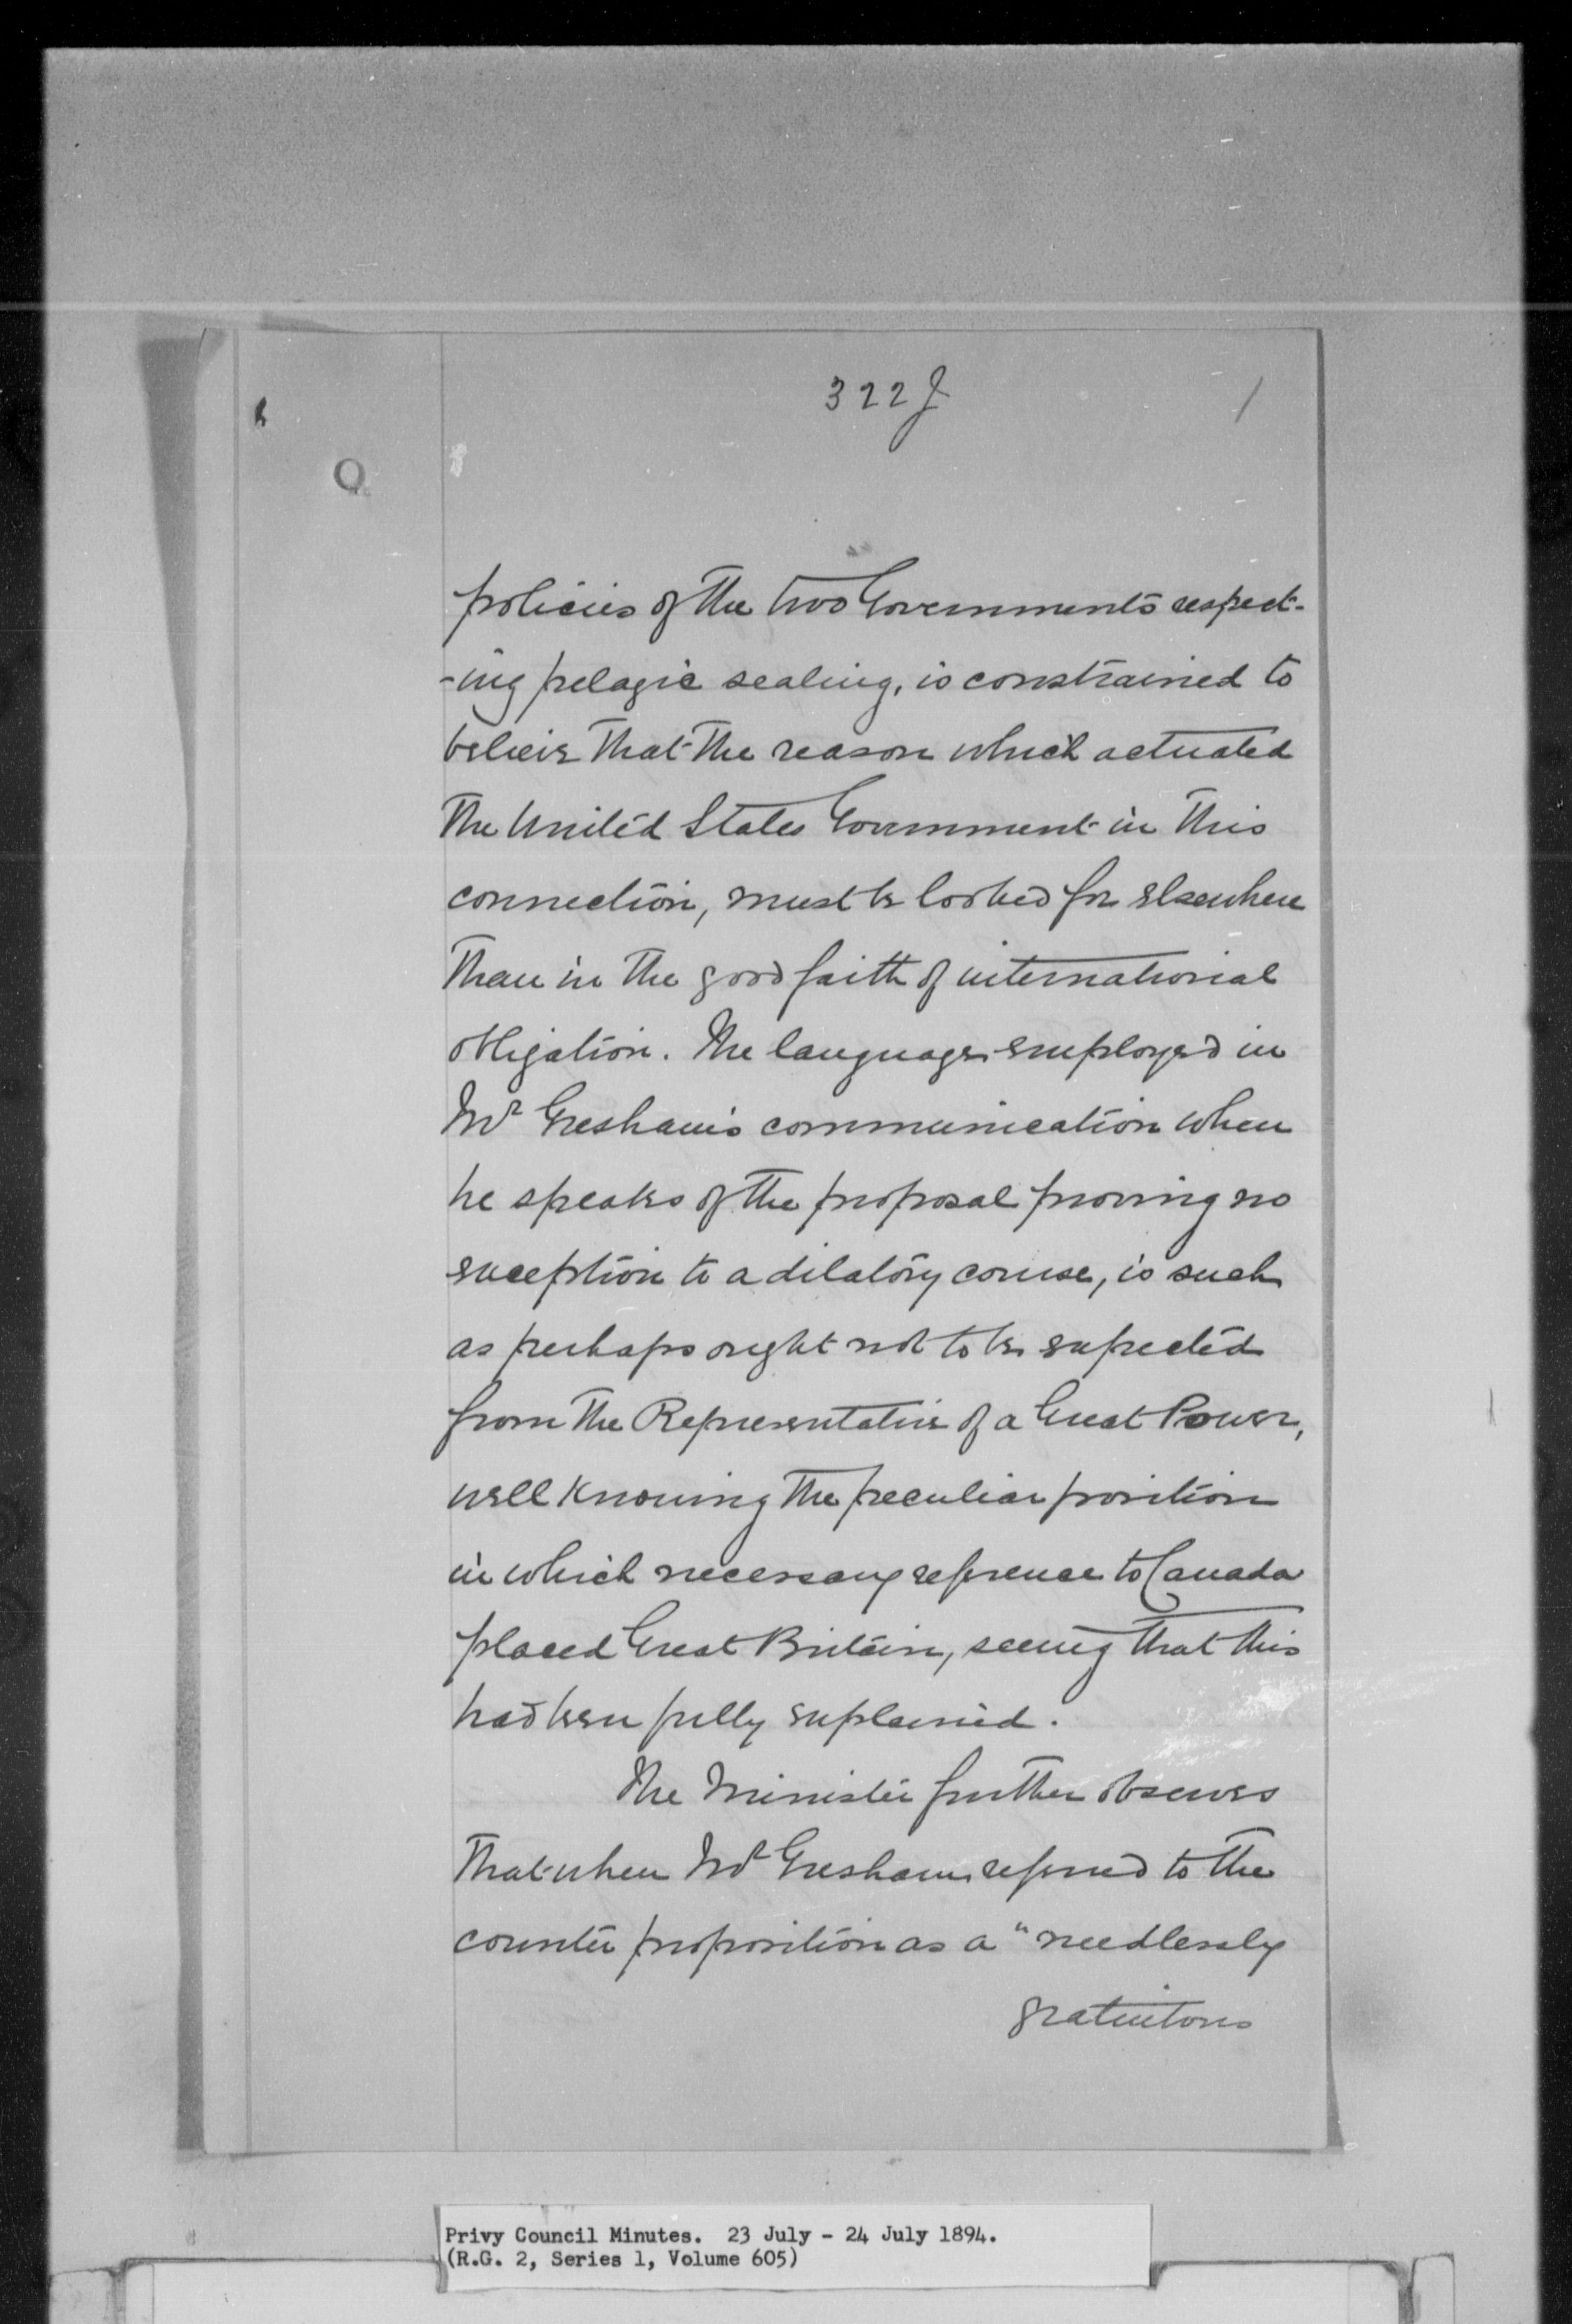 322 J
Q
policies of the two Governments respect-
-ing pelagic sealing, is constrained to
believe that the reason which actuated
the United States Government in this
connection, must be looked for elsewhere
than in the good faith of international
obligation. The language employed in
Mr Gresham's communication when
he speaks of the proposal proving no
exception to a dilatory course, is such
as perhaps ought not to be expected
from the Representative of a Great Power,
well knowing the peculiar position
in which necessary reference to Canada
placed Great Britain, seeing that this
had been fully explained.
The Minister further observes
that when Mr Gresham referred to the
counter proposition as a "needlessly
gratuitous
Privy Council Minutes. 23 July - 24 July 1894.
(R.G. 2, Series 1, Volume 605)